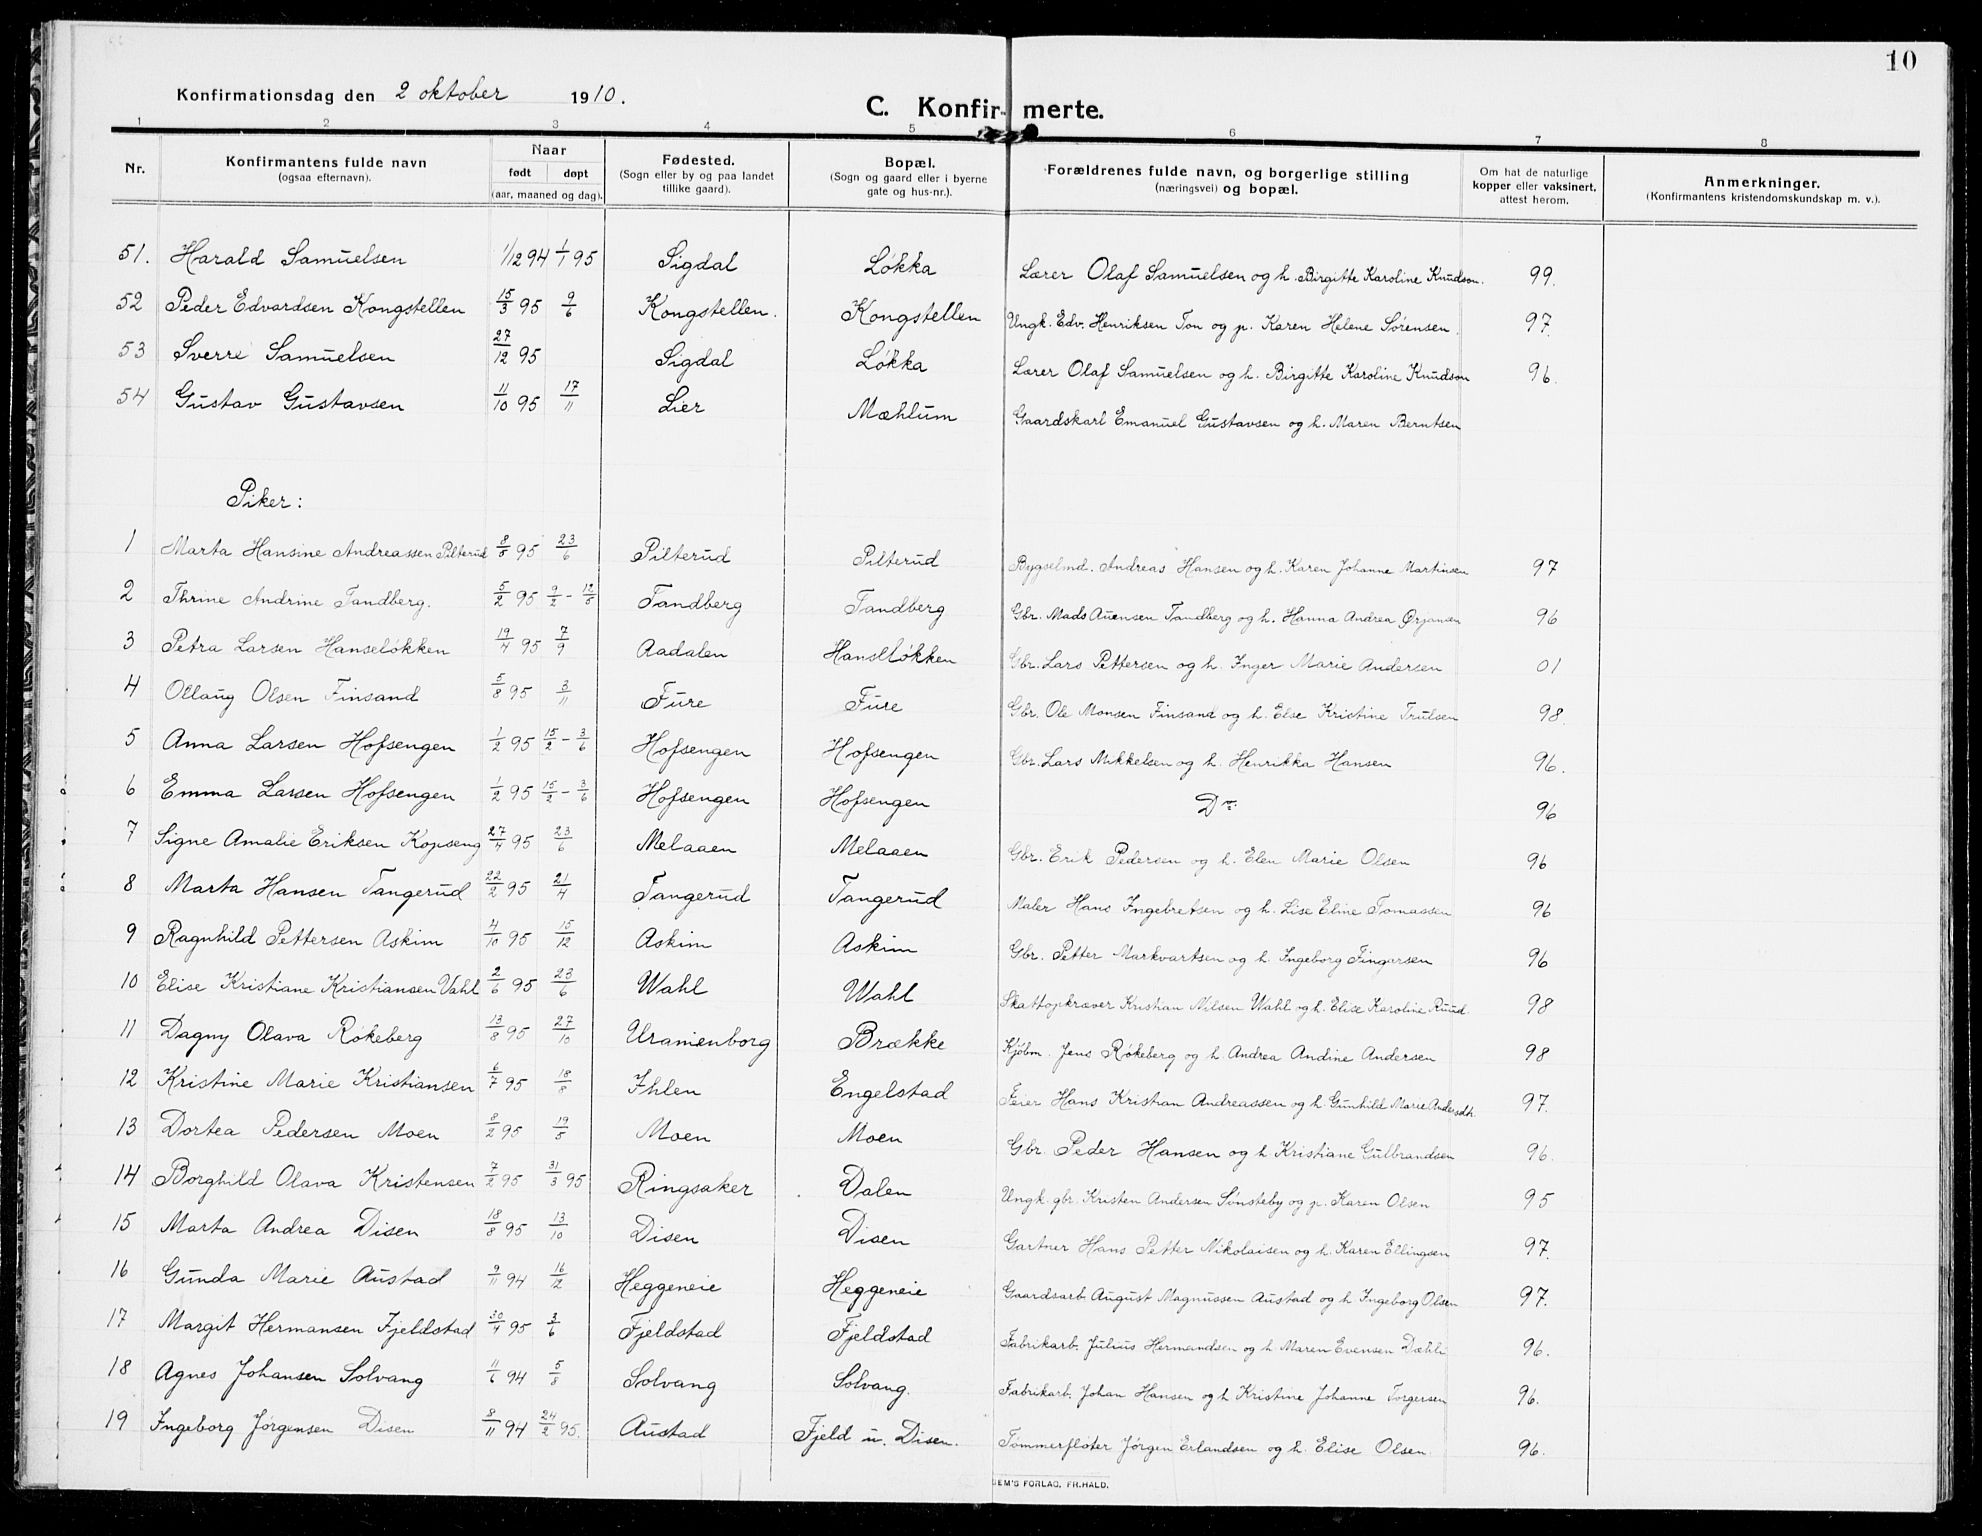 10
Konfirmationsdag den 2 oktober 1910.
C. Konfir- merte.
1 2 3 4 5 6 7 8
Nr. Konfirmantens fulde navn (ogsaa efternavn). Naar født døpt (aar, maaned og dag). Fødested. (Sogn eller by og paa landet tillike gaard). Bopæl. (Sogn og gaard eller i byerne gate og hus-nr.). Forældrenes fulde navn, og borgerlige stilling (næringsvei) og bopæl. Om hat de naturlige kopper eller vaksinert, attest herom. Anmerkninger. (Konfirmantens kristendomskundskap m. v.).
51. Harald Samuelsen 1/12 94 1/1 95 Sigdal Løkka Lærer Olaf Samuelsen og h. Birgitte Karoline Knudson. 99.
52 Peder Edvardsen Kongstellen 15/3 95 9/6 Kongstellen. Kongstellen Ungk. Edv. Henriksen Ton og p. Karen Helene Sørensen. 97.
53 Sverre Samuelsen 27/12 95 Sigdal Løkka Lærer Olaf Samuelsen og h. Birgitte Karoline Knudson 96.
54 Gustav Gustavsen 11/10 95 17/11 Lier Mæhlum Gaardskarl Emanuel Gustavsen og h. Maren Berntsen
Piker:
1 Marta Hansine Andreassen Pilterud 8/5 95 23/6 Pilterud Pilterud Bygselmd. Andreas Hansen og h. Karen Johanne Martinsen 97
2 Thrine Andrine Tandberg. 5/2 95 9/2 - 12/5 Tandberg Tandberg Gbr. Mads Auensen Tandberg og h. Hanna Andrea Ørjansen 96
3 Petra Larsen Hanseløkken 19/4 95 7/9 Aadalen Hanseløkken Gbr. Lars Pettersen og h. Inger Marie Andersen 01
4 Ollaug Olsen Finsand 5/8 95 3/11 Fure Fure Gbr. Ole Monsen Finsand og h. Else Kristine Trulsen 98.
5 Anna Larsen Hofsengen 1/2 95 15/2 - 3/6 Hofsengen Hofsengen Gbr. Lars Mikkelsen og h. Henrikka Hansen 96.
6 Emma Larsen Hofsengen 1/2 95 15/2 - 3/6 Hofsengen Hofsengen Do. 96
7 Signe Amalie Eriksen Kopseng 27/4 95 23/6 Melaaen Melaaen Gbr. Erik Pedersen og h. Elen Marie Olsen 96
8 Marta Hansen Tangerud 22/2 95 21/4 Tangerud Tangerud Maler Hans Ingebretsen og h. Lise Eline Tomassen 96
9 Ragnhild Pettersen Askim 4/10 95 15/12 Askim Askim Gbr. Petter Markvartsen og h. Ingeborg Fingarsen 96
10 Elise Kristiane Kristiansen Vahl 2/6 95 23/6 Wahl Wahl Skatteopkræver Kristian Nilsen Wahl og h. Elise Karoline Ruud. 98
11 Dagny Olava Røkeberg 13/8 95 27/10 Uranienborg Brække Kjøbm. Jens Røkeberg og h. Andrea Andine Andersen 98
12 Kristine Marie Kristiansen 6/7 95 18/8 Ihlen Engelstad Feier Hans Kristian Andreassen og h. Gunhild Marie Andersdtr. 97.
13 Dortea Pedersen Moen 8/2 95 19/5 Moen Moen Gbr. Peder Hansen og h Kristiane Gulbrandsen 96.
14 Borghild Olava Kristensen 7/2 95 31/3 95 Ringsaker Dalen Ungk. gbr. Kristen Andersen Sønsteby og p. Karen Olsen 95
15 Marta Andrea Disen 18/8 95 13/10 Disen Disen Gartner Hans Petter Nikolaisen og h. Karen Ellingsen 97.
16 Gunda Marie Austad 9/11 94 16/12 Heggeneie Heggeneie Gaardsarb. August Magnussen Austad og h Ingeborg Olsen 97.
17 Margit Hermansen Fjeldstad 30/4 95 3/6 Fjeldstad Fjeldstad Fabrikarb. Julius Hermandsen og h. Maren Evensen Dæhli 96.
18 Agnes Johansen Solvang 11/6 94 5/8 Solvang Solvang. Fabrikarb. Johan Hansen og h Kristine Johanne Torgersen 96.
19 Ingeborg Jørgensen Disen 8/11 94 24/2 95. Austad Fjeld u. Disen. Tømmerfløter Jørgen Erlandsen og h. Elise Olsen. 96.
EM'S FORLAG, FR. HALD.